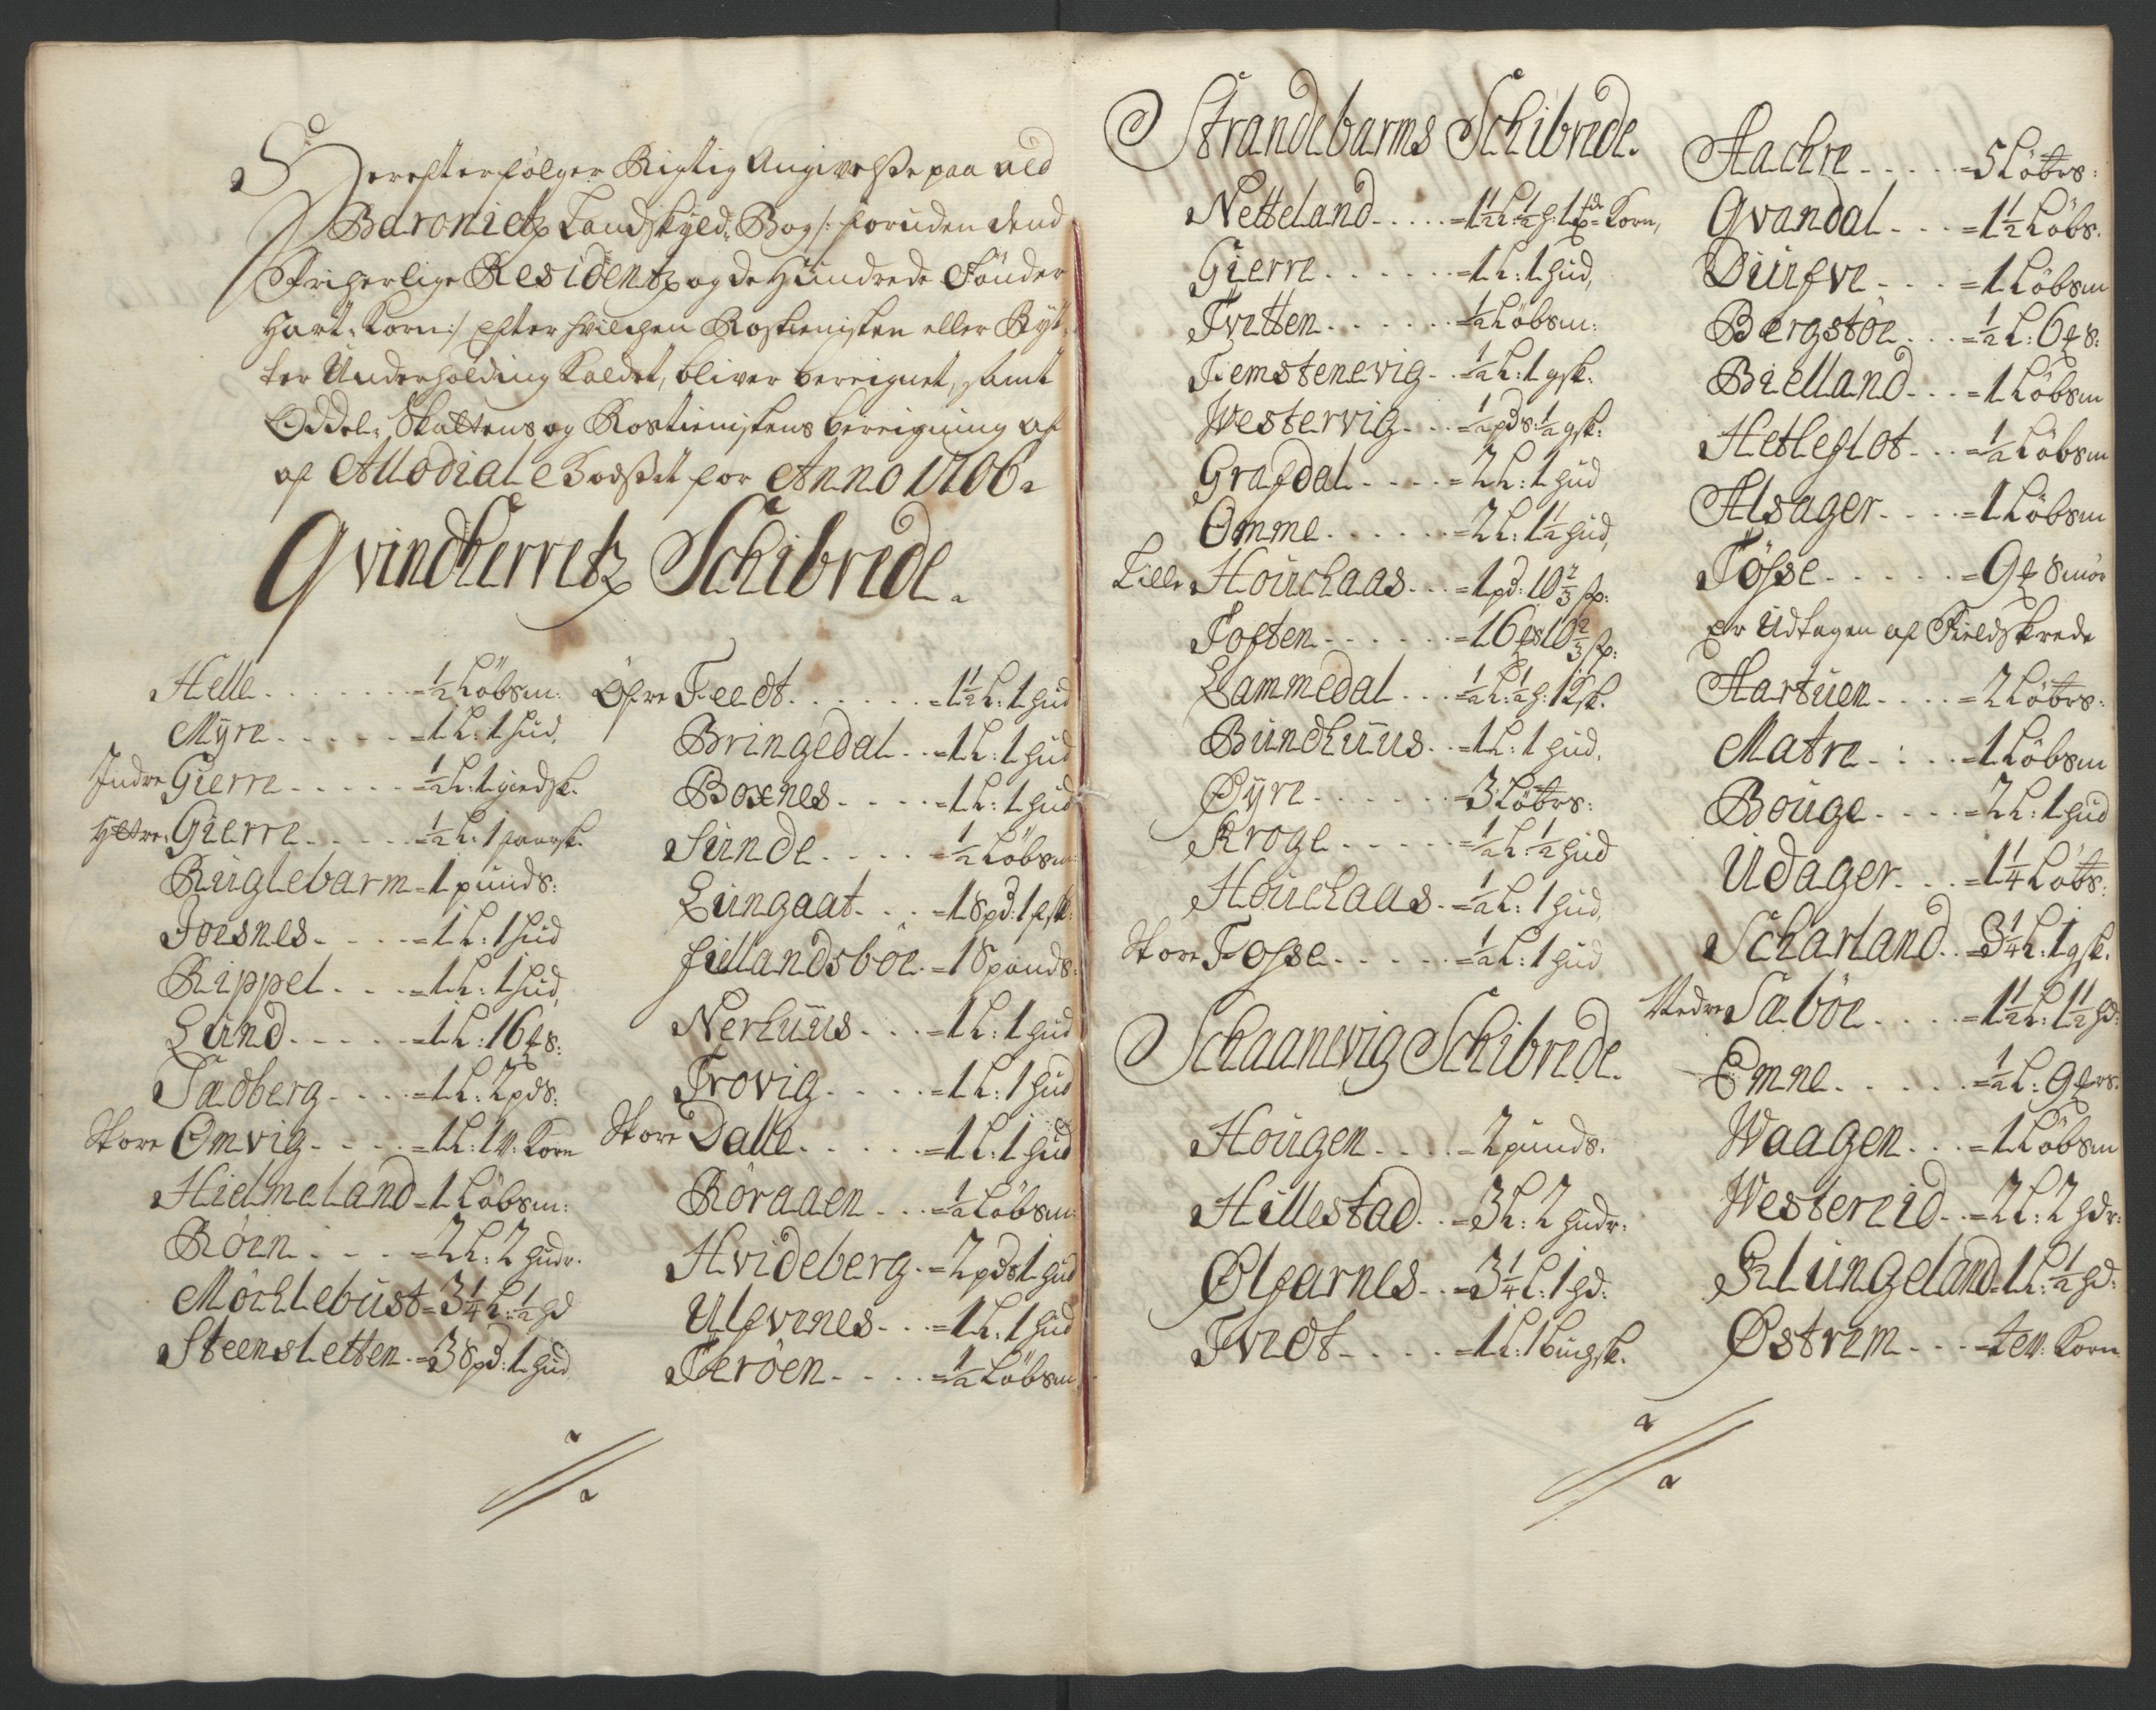 Herefter følger Rigtig Angivelse paa ald
Baroniets Landskyld Bog /: foruden dend
Friherlige Residentz og de Hundrede Tønder
Hart-Korn :/ Efter hvilchen Rostienisten eller Ryt-
ter Underholding kaldet, bliver beregnet, samt
Oddel-Skattens og Rostienistens beregning af
af Allodiale Godset for Anno 1706.
Qvindherretz Schibrede.
Helle - - - - = ½ Löbsm:
Myre - - - - = 1 L: 1 hud,
Indre Gierre - - - - = ½ L: 1 giedsk.
Yttre Gierre - - - - = ½ L: 1 faarsk.
Ruglebarm = 1 punds:
Joesnes - - - = 1 L: 1 hud
Rippel - - - = 1 L: 1 hud,
Lund - - - - = 1 L: 16 ₰ s:
Sædberg - - - = 1 L: 2 pds:
Store Omvig - - - = 1 L: 1 v: Korn
Hielmeland = 1 Löbsm:
Röen - - - = 2 L: 2 hudr.
Möchlebust = 3¼ L: ½ hd
Steensletten = 3 spd: 1 hud
Öfre Feedt - - - - = 1½ L: 1 hud
Bringedal - - = 1 L: 1 hud
Boxnes - - - = 1 L: 1 hud
Sunde - - - - = ½ Löbsm:
Lungaat - - - = 1 Spd: 1 fsk:
Fiellandsböe = 1 Spands:
Nerhuus - - - = 1 L: 1 hud
Trovig - - - - = 1 L: 1 hud
Store Dalle - - - - = 1 L: 1 hud
Röraaen - - - = ½ Löbsm:
Hvideberg - = 2 pds 1 hud
Ulfvenes - - - = 1 L: 1 hud
Teröen - - - - = ½ Löbsm
Strandebarms Schibrede.
Netteland - - - - = 1½ L: ½ h: 1 pd Korn,
Gierre - - - - - = 1 L: 1 hud,
Tvetten - - - - - = ½ Löbsm:
Femstenevig - - = ½ L: 1 gsk:
Westervig - - - = ½ pds: ½ gsk:
Grafdal - - - - = 2 L: 1 hud
Omme - - - - - = 2 L: 1½ hud,
Lille Houchaas - - = 1 pd: 10⅔ sp:
Toften - - - - - = 16 ₰ 10⅔ sp:
Lammedal - - - = ½ L: ½ h: 1 ksk.
Bundhuus - - = 1 L: 1 hud,
Øyre - - - - - = 3 Löbrs:
Kroge - - - - - = ½ L: ½ hud
Houchaas - = ½ L: 1 hud,
Store Fosse - - - - - = ½ L: 1 hud
Schaanevig Schibrede.
Hougen - - - - = 2 punds.
Hillestad - - = 3 L: 2 hudr:
Ølfarnes - - = 3¼ L: 1 hd:
Tvedt - - - - = 1 L: 1 bugsk.
Aachre - - - - = 5 Löbrs:
Qvandal - - - = 1½ Löbs.
Diurfve - - - = 1 Löbsm
Bergstöe - - - = ½ L: 6 ₰ s:
Bielland - - - = 1 Löbsm
Hetleflot - - = ½ Löbsm
Alsager - - - = 1 Löbsm
Tösse - - - - - = 9 ₰ Smör
er Udtagen af Fieldskrede
Aartuen - - - - = 2 Löbrs:
Matre - : - - = 1 Löbsm
Bouge - - - - = 2 L: 1 hud
Udager - - - = 1¼ Löbs:
Scharland - - = 3¼ L: 1 gsk.
Nedre Sæböe - - - - = 1½ L: 1½ hd:
Emne - - - - - = ½ L: 9 ₰ rs.
Waagen - - - = 1 Löbsm
Westereid - - = 2 L: 2 hdr:
Klungeland = 1 L: ½ hd:
Østrem - - - = Korn